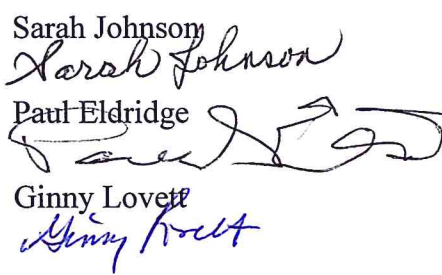 Sarah Johnson
Sarah Johnson
Paul Eldridge
Ginny Lovett
Ginny Lovett